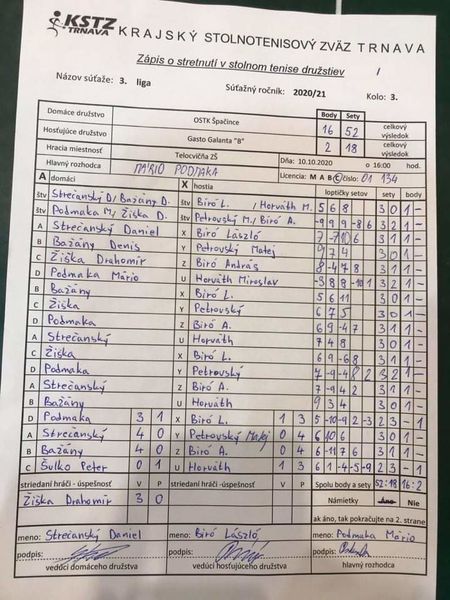 KSTZ TRNAVA KRAJSKÝ STOLNOTENISOVÝ ZVÄZ TRNAVA
Zápis o stretnutí v stolnom tenise družstiev /
Názov súťaže: 3. liga Súťažný ročník: 2020/21 Kolo: 3.
Body Sety
Domáce družstvo OSTK Špačince 16 52 celkový výsledok
Hosťujúce družstvo Gasto Galanta "B" 2 18 celkový výsledok
Hracia miestnosť Telocvičňa ZŠ Dňa: 10.10.2020 o 16:00 hod.
Hlavný rozhodca MÁRIO PODMAKA Licencia: M A B C číslo: 01 134
A domáci X hostia loptičky setov sety body
štv Strečanský D/Bažány D. štv Biró L. / Horváth M. 5 6 8 3 0 1 -
štv Podmaka M/Žiška D. štv Petrovský M./Biró A. -9 9 9 -8 6 3 2 1 -
A Strečanský Daniel X Biró László 7 -7 10 6 3 1 1 -
B Bažány Denis Y Petrovský Matej 9 7 4 3 0 1 -
C Žiška Drahomír Z Biró András 8 -4 7 8 3 1 1 -
D Podmaka Mário U Horváth Miroslav -3 8 8 -10 1 3 2 1 -
B Bažány X Biró L. 5 6 11 3 0 1 -
C Žiška Y Petrovský 6 7 5 3 0 1 -
D Podmaka Z Biró A. 6 9 -4 7 3 1 1 -
A Strečanský U Horváth 7 4 8 3 0 1 -
C Žiška X Biró L. 6 9 -6 8 3 1 1 -
D Podmaka Y Petrovský 7 -9 -4 8 2 3 2 1 -
A Strečanský Z Biró A. 7 -9 4 2 3 1 1 -
B Bažány U Horváth 9 3 4 3 0 1 -
D Podmaka 3 1 X Biró L. 1 3 5 -10 -9 2 -3 2 3 - 1
A Strečanský 4 0 Y Petrovský Matej 0 4 6 10 6 3 0 1 -
B Bažány 4 0 Z Biró A. 0 4 6 -11 7 6 3 1 1 -
C Šulko Peter 0 1 U Horváth 1 3 6 1 -4 -5 -9 2 3 - 1
striedaní hráči - úspešnosť V P striedaní hráči - úspešnosť V P Spolu body a sety 52:18 16:2
Žiška Drahomír 3 0 Námietky Áno Nie
ak áno, tak pokračujte na 2. strane
meno: Strečanský Daniel meno: Biró László meno: Podmaka Mário
podpis: podpis: podpis:
vedúci domáceho družstva vedúci hosťujúceho družstva hlavný rozhodca